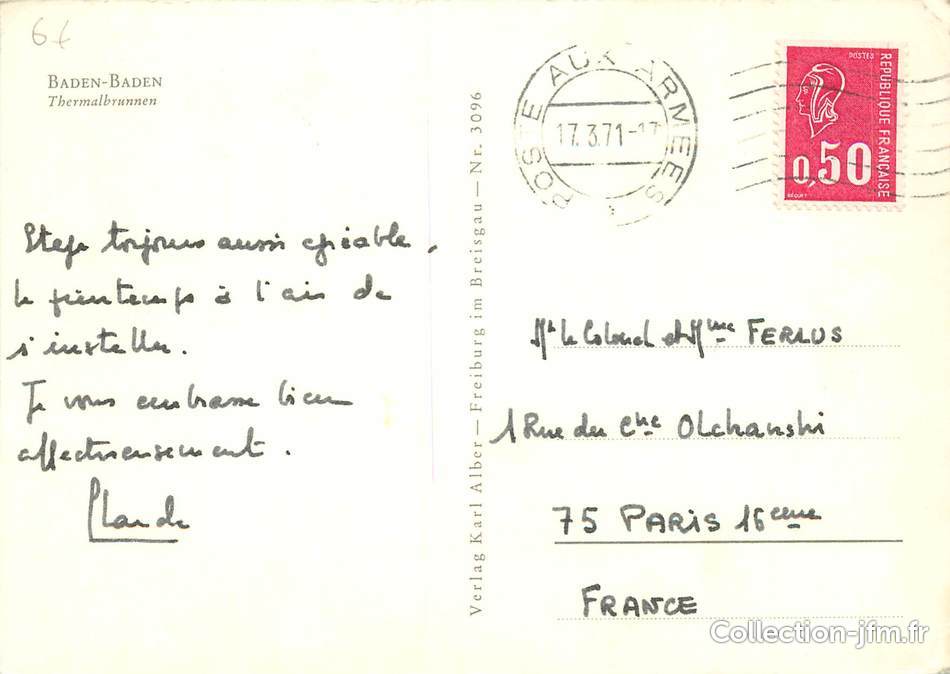 6f
BADEN-BADEN
Thermalbrunnen
Stage toujours aussi agréable,
le printemps à l'air de
s'installer.
Je vous embrasse bien
affectueusement.
Claude
Verlag Karl Alber — Freiburg im Breisgau — Nr. 3096
POSTE AUX ARMEES
17.3.71-17
POSTES
REPUBLIQUE FRANÇAISE
0,50
BEQUET
Mr le Colonel et Mme FERLUS
1 Rue du Cne Olchanski
75 PARIS 16eme
FRANCE
Collection-jfm.fr